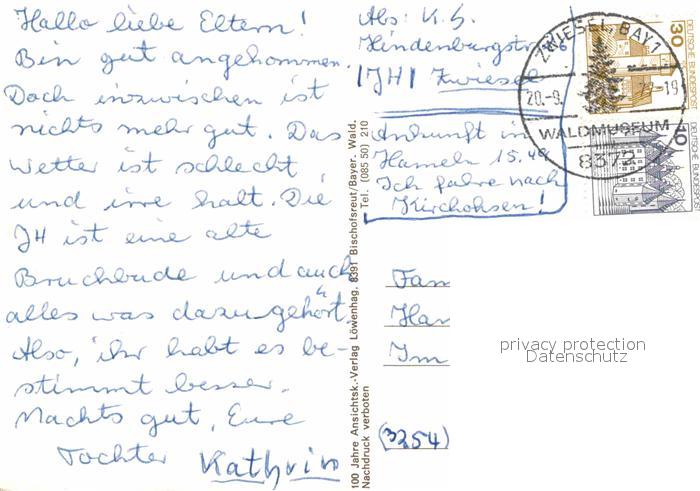 Hallo liebe Eltern!
Bin gut angekommen.
Doch inzwischen ist
nichts mehr gut. Das
Wetter ist schlecht
und irre kalt. Die
JH ist eine alte
Bruchbude und auch
alles was dazugehört.
Also, ihr habt es be-
stimmt besser.
Machts gut, Eure
Tochter Kathrin
Abs: K. S.
Hindenburgstr. 26
(JH) Zwiesel
Ankunft in
Hameln 15.49
Ich fahre nach
Kirchohsen!
ZWIESEL, BAY 1
20.-9.
-19
WALDMUSEUM
8372
30
DEUTSCHE BUNDESPOST
10
DEUTSCHE BUNDESPOST
100 Jahre Ansichtsk.-Verlag Löwenhag, 8391 Bischofsreut/Bayer. Wald.
Nachdruck verboten
Tel. (085 50) 210
Fam
Ham
Im
(3254)
privacy protection
Datenschutz